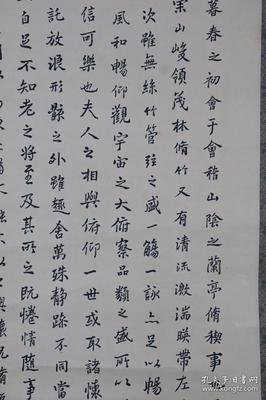 暮春之初會于會稽山陰之蘭亭脩稧事
崇山峻領茂林脩竹又有清流激湍暎帶左
次雖無絲竹管弦之盛一觴一詠亦足以暢
風和暢仰觀宇宙之大俯察品類之盛所以
信可樂也夫人之相與俯仰一世或取諸懷
託放浪形骸之外雖趣舍萬殊静躁不同當
自足不知老之將至及其所之既惓情隨事
孔夫子旧书网